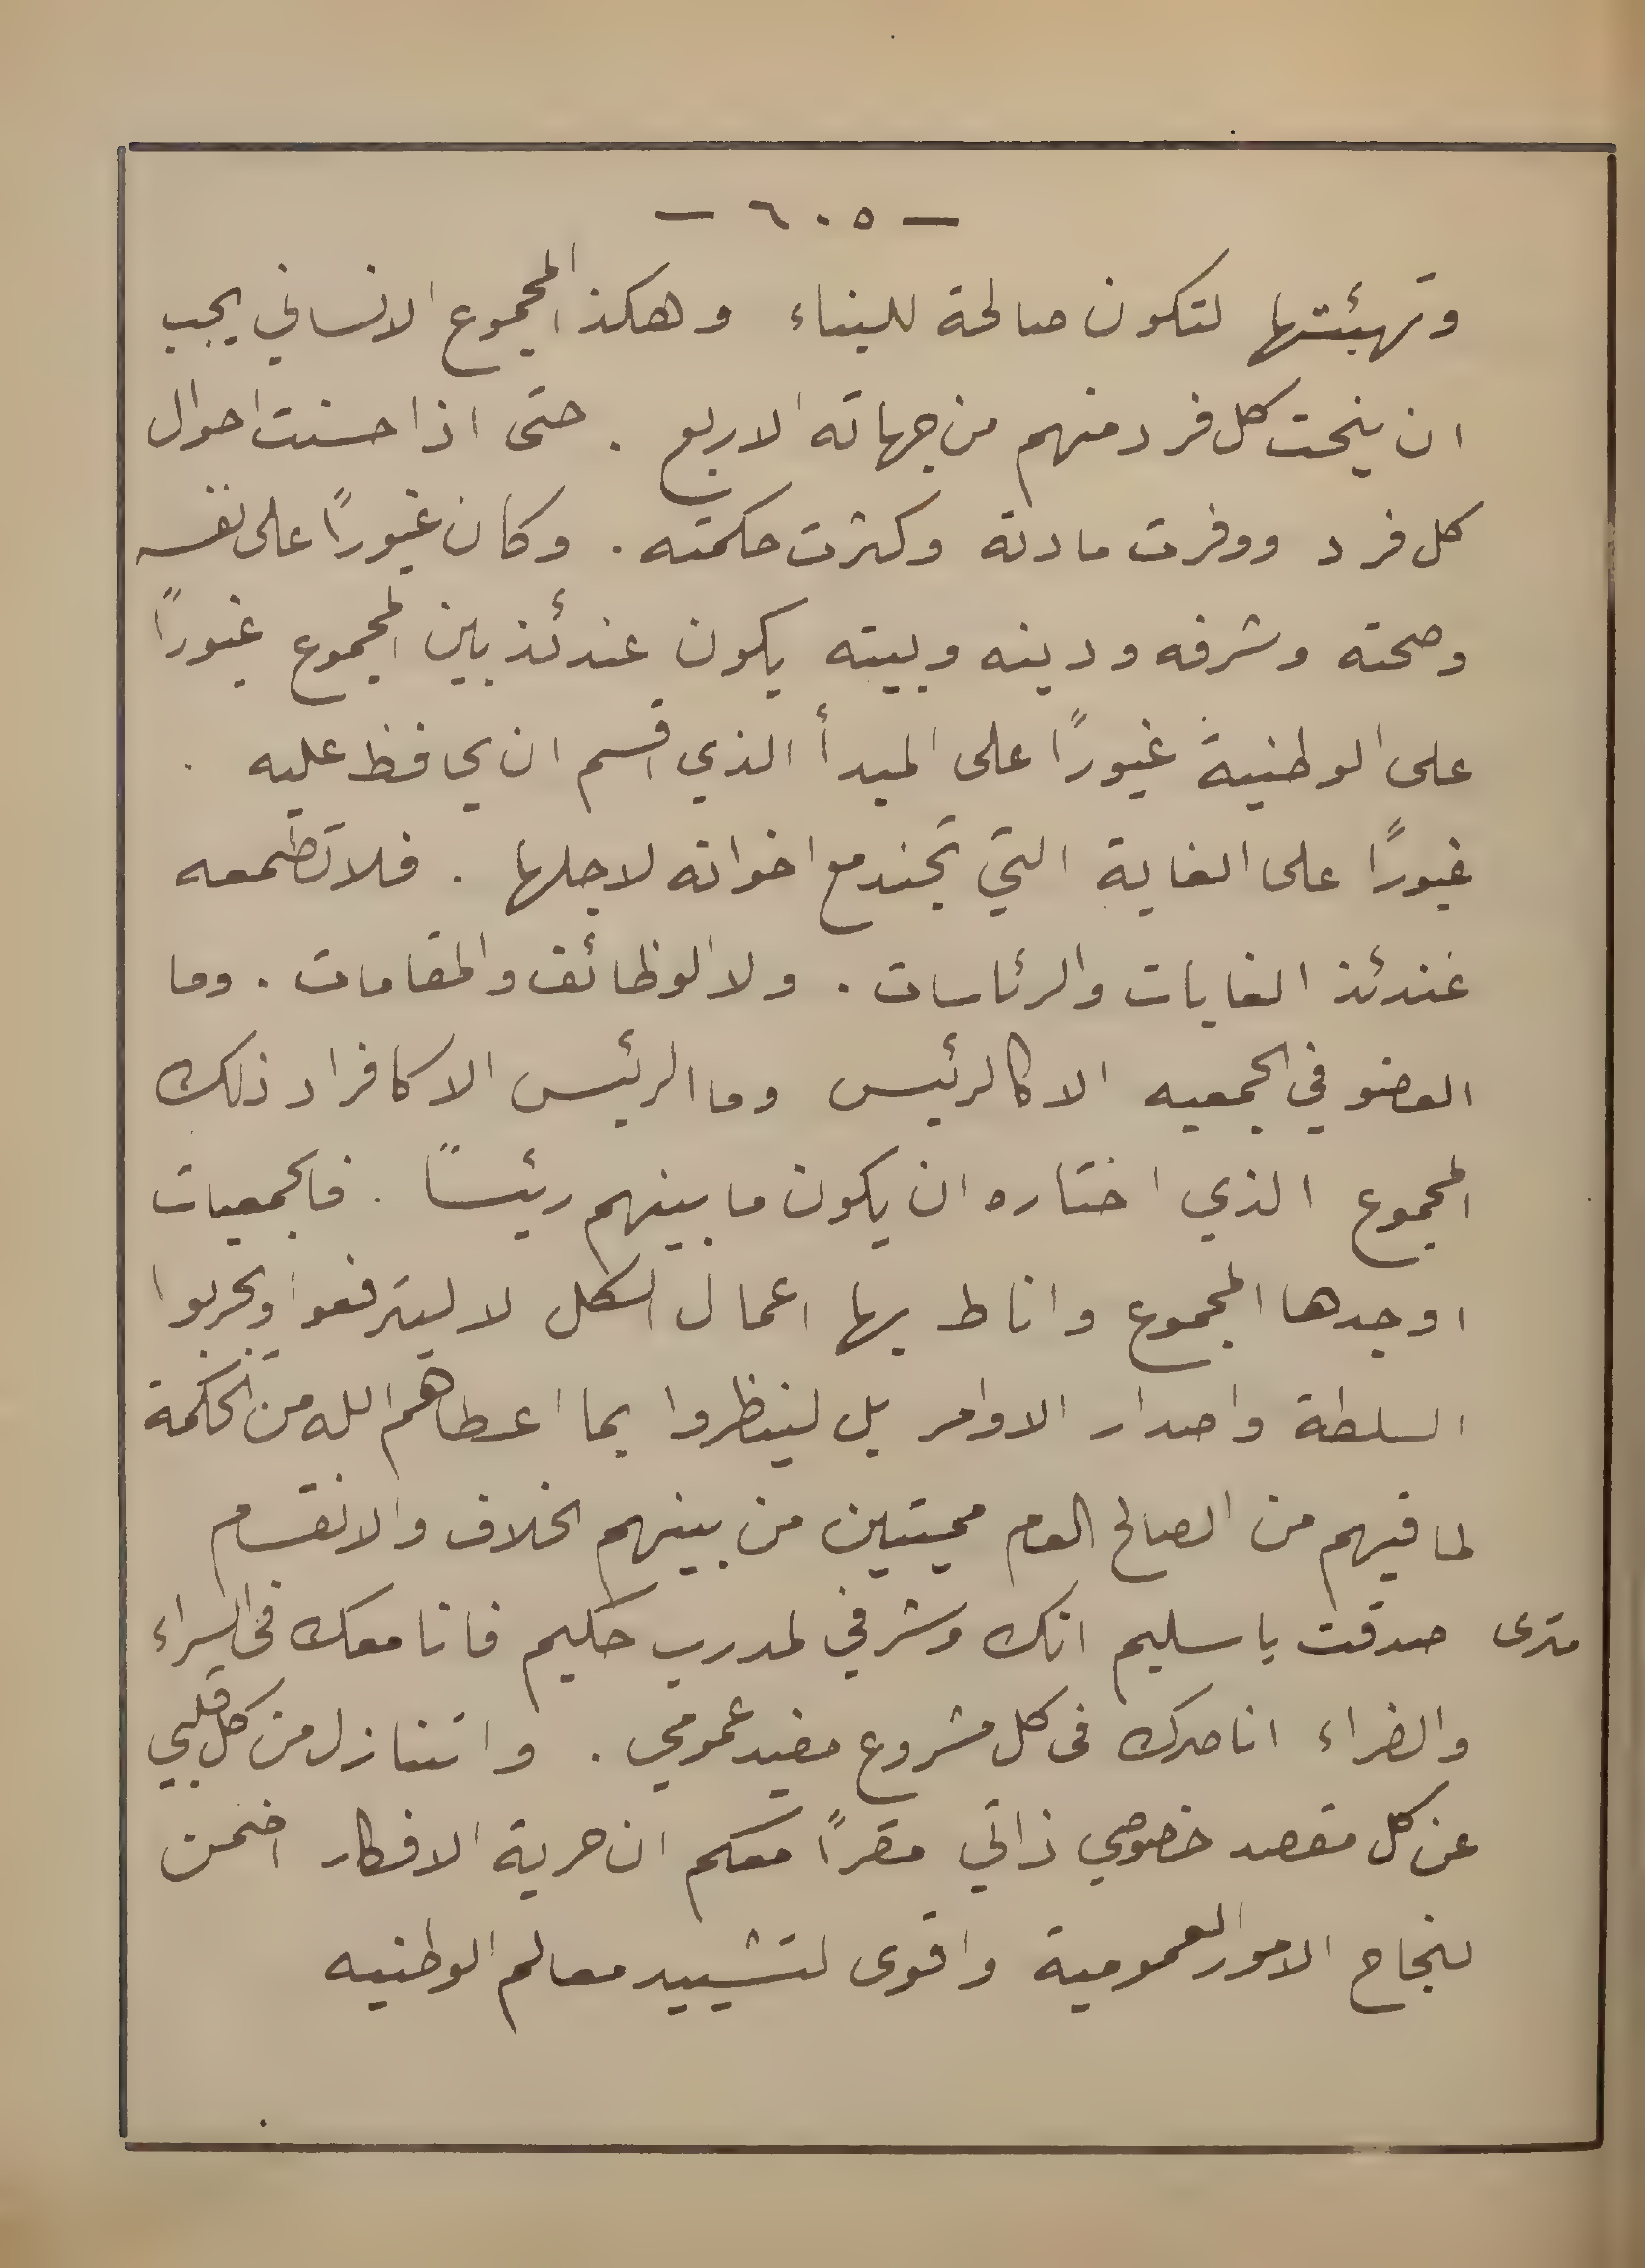 — ٦٠٥ —
وتهيئتها لتكون صالحة للبناء وهكذا المجموع الانساني يجب
ان ينحت كل فرد منهم من جهاته الاربع . حتى اذا حسنت احوال
كل فرد ووفرت مادته وكثرت حكمته . وكان غيوراً على نفسه
وصحته وشرفه ودينه وبيته يكون عندئذ بين المجموع غيوراً
على الوطنية غيوراً على المبدأ الذي اقسم ان يحافظ عليه .
غيوراً على الغاية التي تجند مع اخوانه لاجلها . فلا تطمعه
عندئذ الغايات والرئاسات . ولا الوظائف والمقامات . وما
العضو في الجمعيه الا كالرئيس وما الرئيس الا كافراد ذلك
المجموع الذي اختاره ان يكون ما بينهم رئيساً . فالجمعيات
اوجدها المجموع واناط بها اعمال الكل لا ليترفعوا ويخربوا
السلطة واصدار الاوامر بل لينظروا بما اعطاهم الله من الحكمة
لما فيهم من الصالح العام مميتين من بينهم الخلاف والانقسام
مترى صدقت يا سليم انك وشرفي لمدرب حكيم فانا معك في السراء
والضراء اناصرك في كل مشروع مفيد عمومي . واتنازل من كل قلبي
عن كل مقصد خصوصي ذاتي مقراً معكم ان حرية الافكار اضمن
لنجاح الامور العمومية واقوى لتشييد معالم الوطنيه